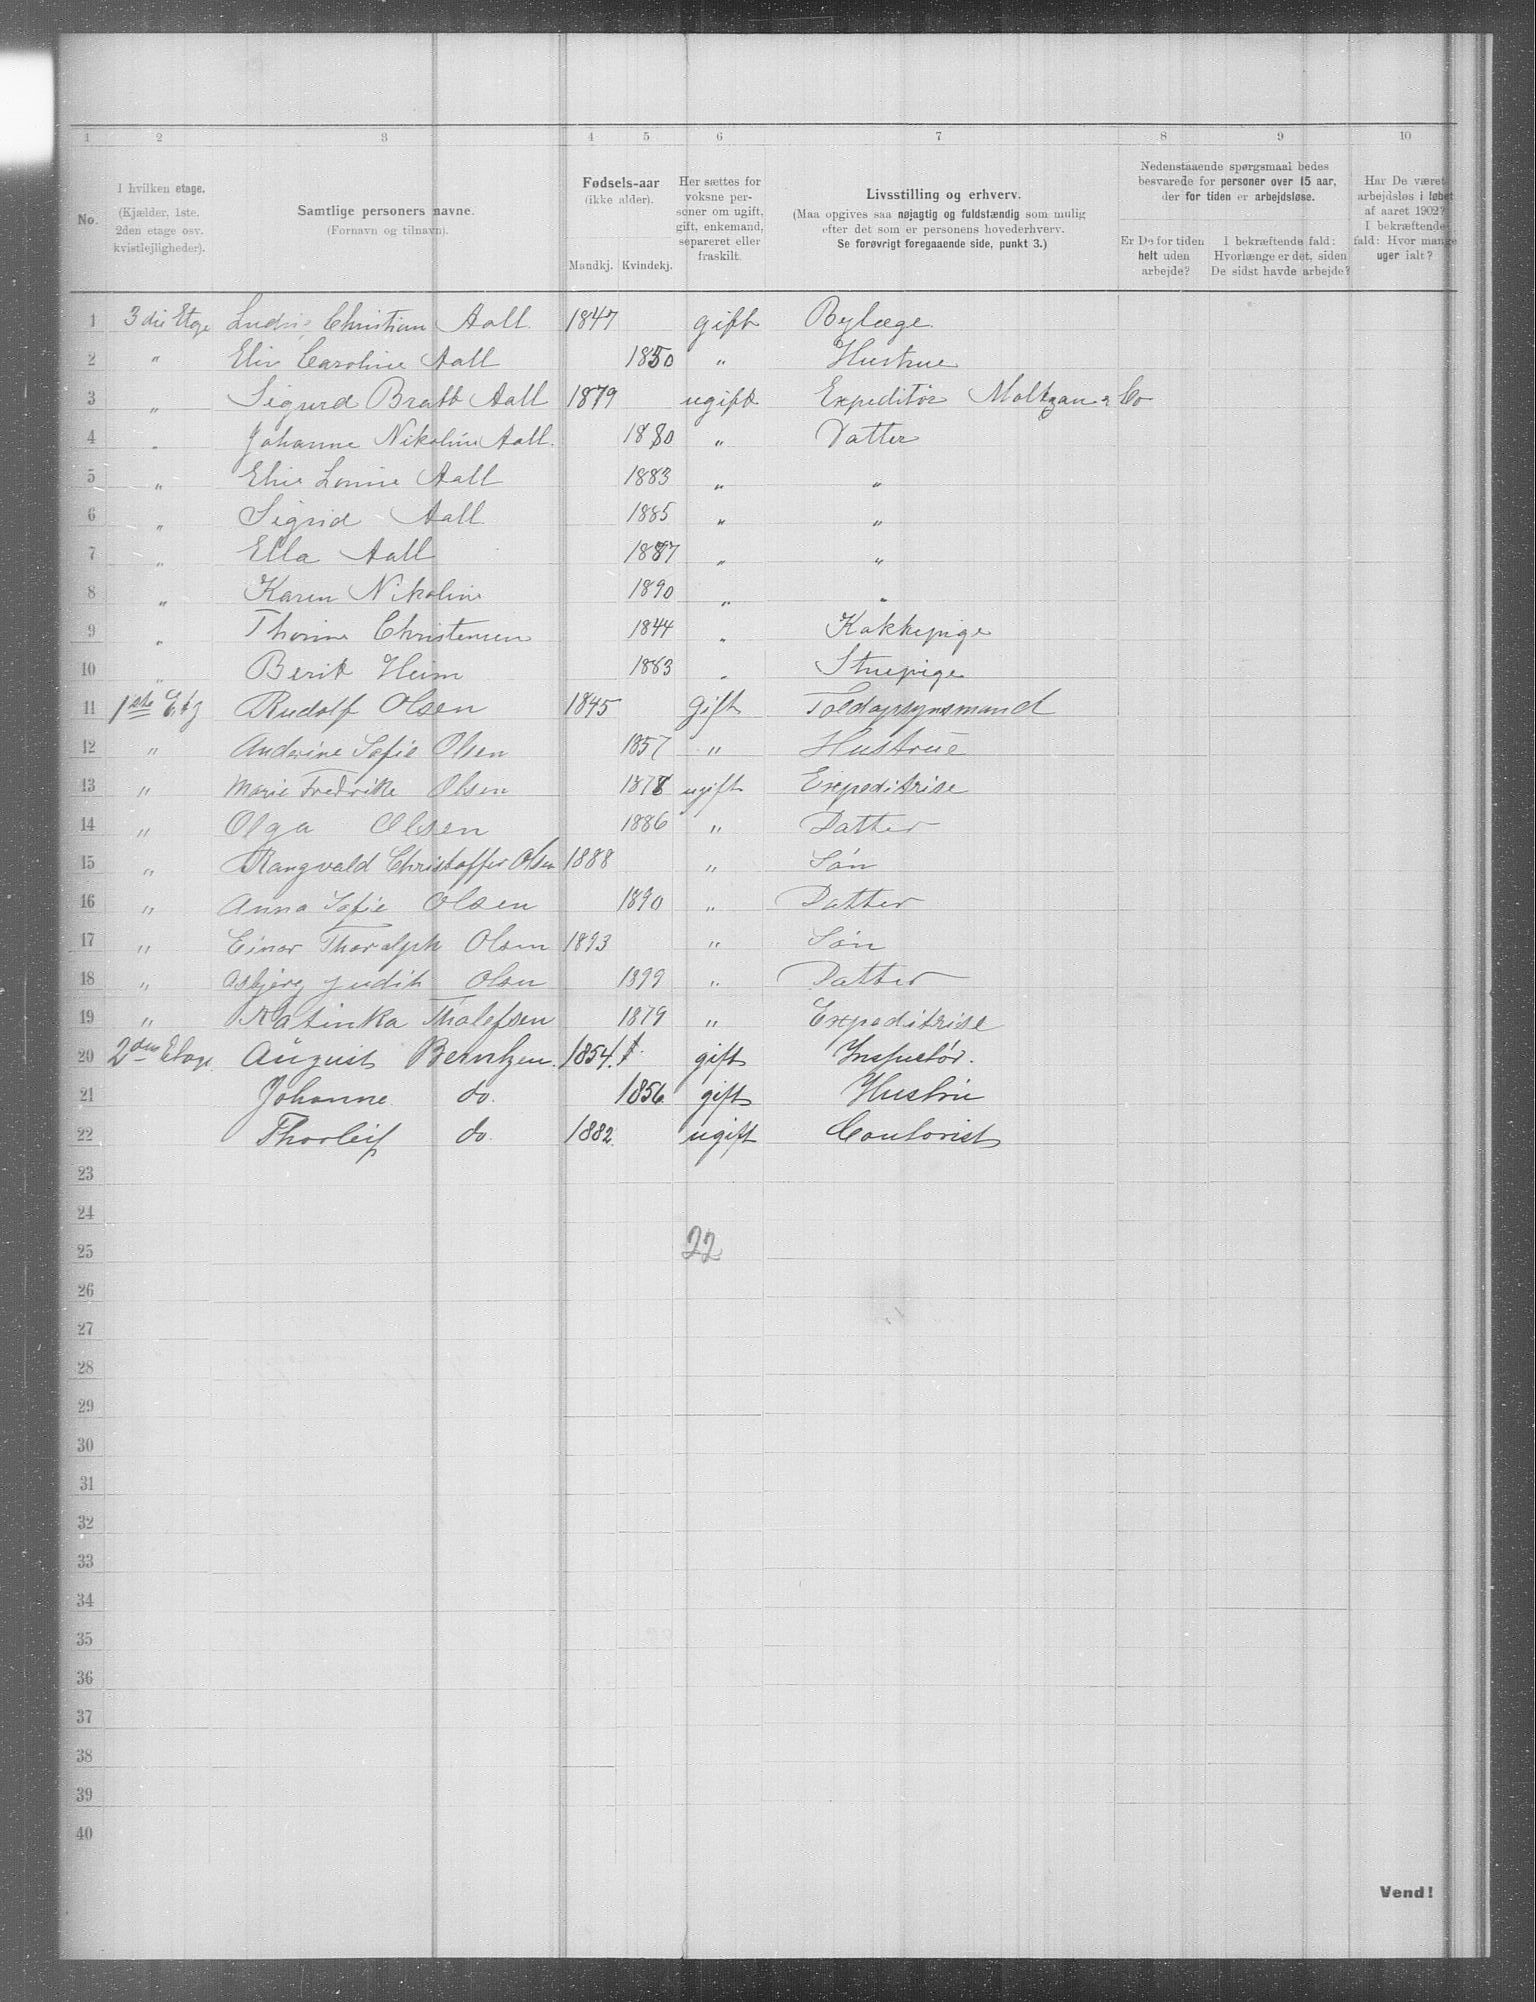 1 2 3 4 5 6 7 8 9 10
No.
I hvilken etage.
(Kjælder, 1ste.
2den etage osv.
kvistlejligheder).
Samtlige personers navne.
(Fornavn og tilnavn).
Fødsels-aar
(ikke alder).
Mandkj. Kvindekj.
Her sættes for
voksne per-
soner om ugift,
gift, enkemand,
separeret eller
fraskilt.
Livsstilling og erhverv.
(Maa opgives saa nøjagtig og fuldstændig som mulig
efter det som er personens hovederhverv.
Se forøvrigt foregaaende side, punkt 3.)
Nedenstaaende spørgsmaal bedes
besvarede for personer over 15 aar,
der for tiden er arbejdsløse.
Er De for tiden
helt uden
arbejde?
I bekræftende fald:
Hvorlænge er det, siden
De sidst havde arbejde?
Har De været
arbejdsløs i løbet
af aaret 1902?
I bekræftende
fald: Hvor mange
uger ialt?
1 3die Etage Christian Aall. 1847 gift Bylæge.
2 " Caroline Aall 1850 " Hustrue
3 " Sigurd Bratt Aall 1879 ugift Expeditør Moltzau & Co
4 " Johanne Nikoline Aall. 1880 " Datter
5 " Elise Aall 1883 " "
6 " Sigrid Aall 1885 " "
7 " Ella Aall 1887 " "
8 " Karen Nikoline 1890 " "
9 " Thorine Christensen 1844 " Kokkepige
10 " Berit Heim 1883 " Stuepige
11 1ste Etg Rudolf Olsen 1845 Gift Toldopsynsmand
12 " Anderine Sofie Olsen 1857 " Hustrue
13 " Marie Fredrike Olsen 1878 ugift Expeditrise
14 " Olga Olsen 1886 " Datter
15 " Rangvald Christoffer Olsen 1888 " Søn
16 " Anna Sofie Olsen 1890 " Datter
17 " Einar Thoralph Olsen 1893 " Søn
18 " Asbjørg Judith Olsen 1899 " Datter
19 " Katinka Tholefsen 1879 " Expeditrise
20 2den Etage August Berntzen. 1854. gift Inspectør.
21 Johanne do. 1856 gift Hustru
22 Thorleif do. 1882. ugift Contorist
23
24
25 22
26
27
28
29
30
31
32
33
34
35
36
37
38
39
40
Vend!